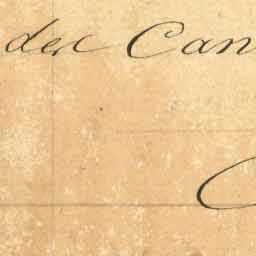 der Can